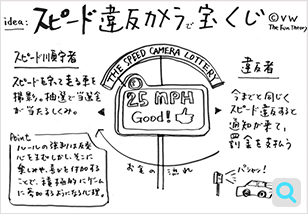 idea: スピード違反カメラで宝くじ
©VW
The Fun Theory
スピード順守者
スピードを守って走る車を
撮影。抽選で当選金
が当たるしくみ。
THE SPEED CAMERA LOTTERY
25 MPH
Good!
違反者
今までと同じく
スピード違反すると
通知が来て、
罰金を支払う
Point
ルールの強制は反発
心を生むが
楽しみや、良いを付加する
ことで、積極的にゲーム
に参加するようになる心理。
お金の流れ
パシャッ!